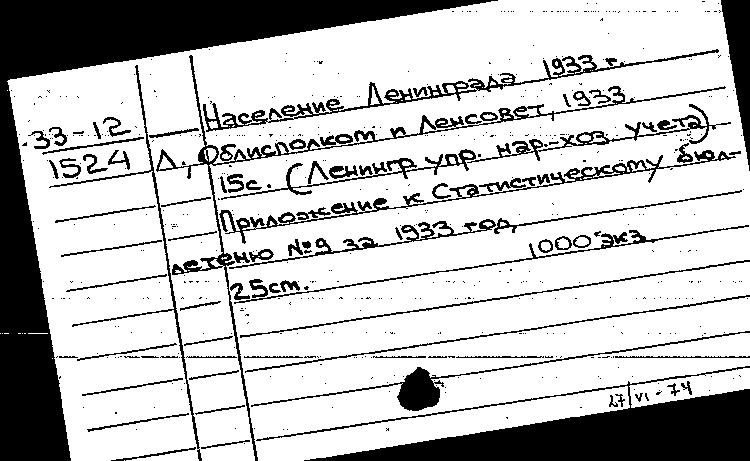 Население Ленинграда 1933 г.
33-12
1524
Л., Облисполком и Ленсовет, 1933.
15с. (Ленингр. упр. нар.-хоз. учета).
Приложение к Статистическому бюл-
летеню №9 за 1933 год,
1000 экз.
25cm.
27/VI-74